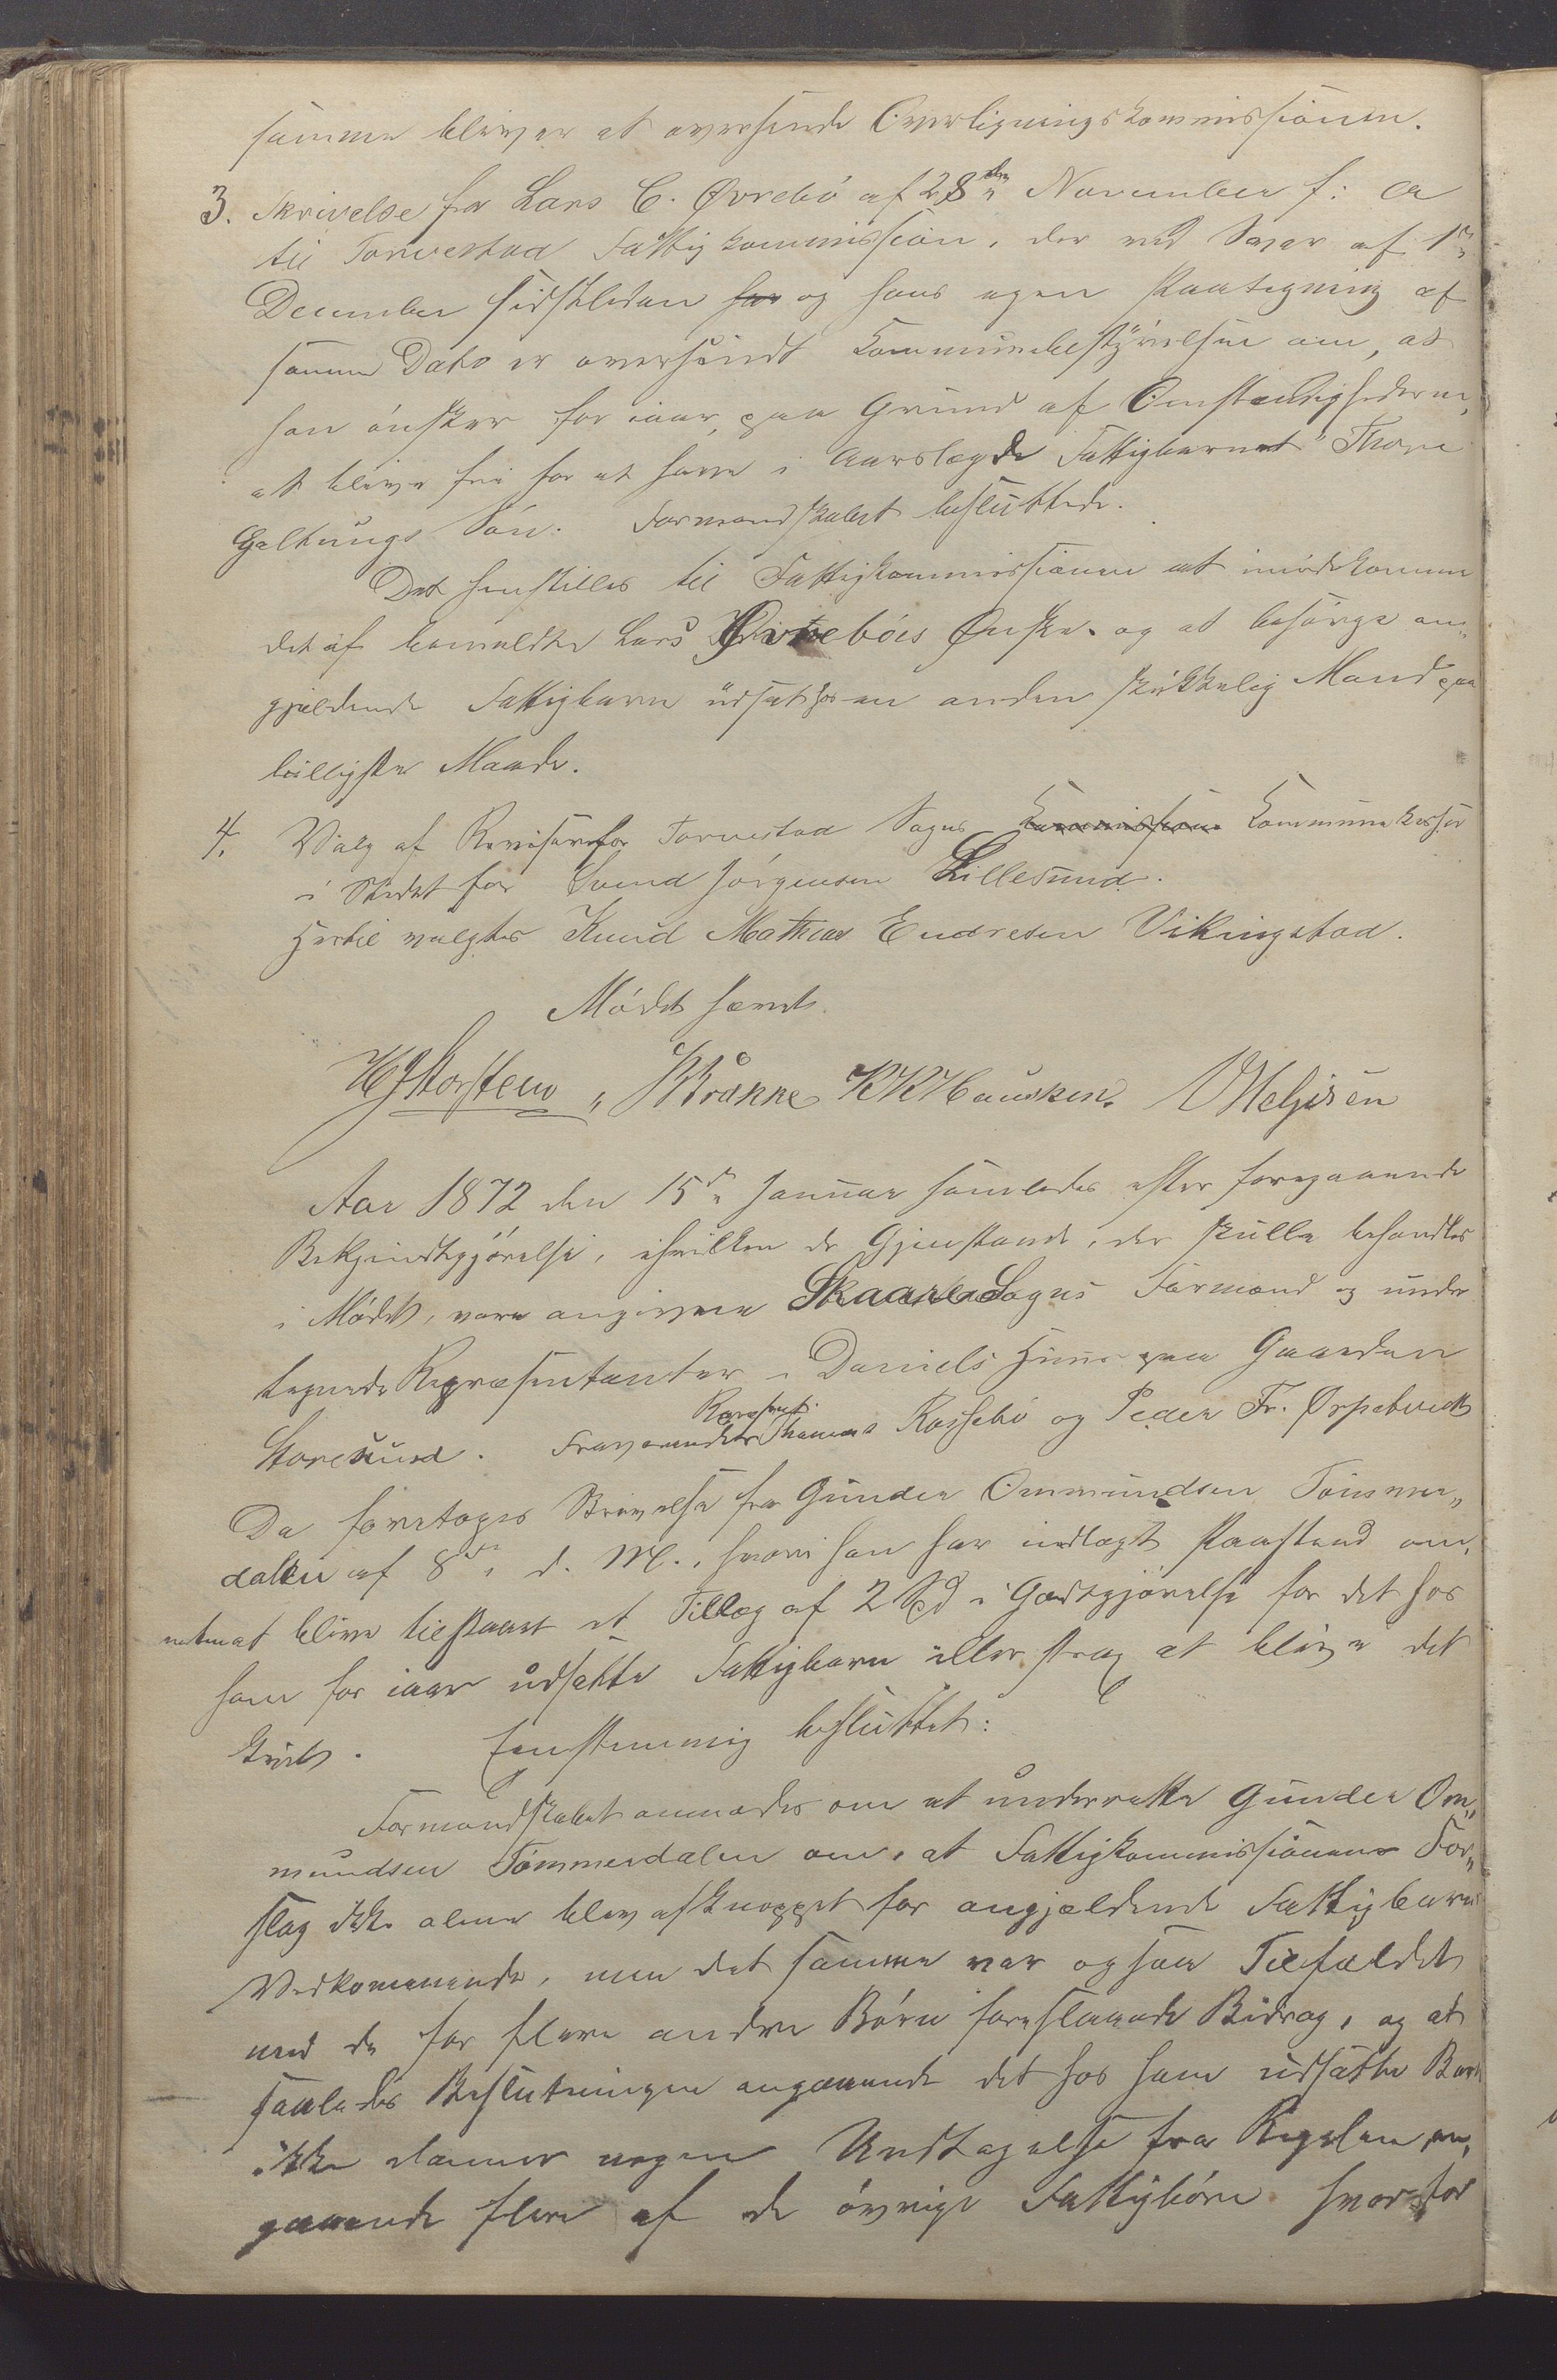 samme bliver at oversende Overligningskommissionen.
3. Skrivelse fra Lars C. Øvrebö af 28de November f: A
til Torvestad Fattigkommission, der med Svar af 1ste
December sidstleden og hans egen Paategning af
samme Dato er oversendt Kommunebestyrelsen om, at
han önsker for iaar, paa Grund af Omstændighederne,
at blive fri for at have i Aarslægde Fattigbarnet Thore
Geltungs Sön. Formandskabet besluttede.
Det henstilles til Fattigkommissionen at imödekomme
det af bemeldte Lars Øvrebös Önske og at besörge an„
gjældende Fattigbarn udsat hos en anden skikkelig Mand paa
billigste Maade.
4. Valg af Revisor for Torvestad Sogns Kommunekasse
i Stedet for Svend Jörgensen Lillesund.
Hertil valgtes Knud Mathias Endresen Vikingstad.
Mödet hævet.
HJStorsteen KKHausken. VHelgesen
Aar 1872 den 15de Januar samledes efter foregaaende
Bekjendtgjörelse, ihvilken de Gjenstande, der skulle behandles
i Mödet, vare angivne Skaare Sogns Formænd og under
tegnede Repræsentanter i Daniels Huus paa Gaarden
Storesund. Fraværende Repræsent. Thomas Rossebö og Peder Fr. Ørpetvedt
Da foretoges Skrivelse fra Gunder Ommundsen Tömmer„
dalen af 8de d. M., hvori han har indlagt Paastand om,
enten at blive tilstaaet et Tillæg af 2 Spd i Godtgjörelse for det hos
ham for iaar udsatte Fattigbarn eller strax at blive det
kvit. Eenstemmig besluttet:
Formandskabet anmodes om at underrette Gunder Om„
mundsen Tömmerdalen om, at Fattigkommissionens For„
slag ikke alene blev afknappet for angjældende Fattigbarns
Vedkommende, men det samme var ogsaa Tilfældet
med de for flere andre Börn foreslaaede Bidrag, og at
saaledes Beslutningen angaaende det hos ham udsatte Barn
ikke danner nogen Undtagelse fra Regelen an„
gaaende flere af de övrige Fattigbörn hvorfor